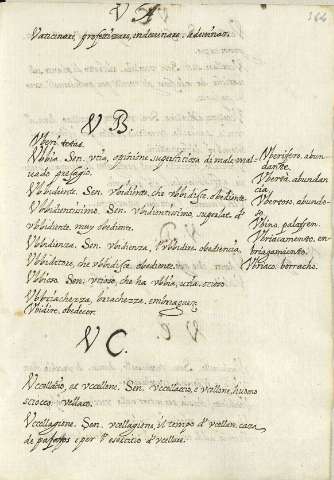 164
V A
Vaticinari, profetizzare, indovinare, adevinar.
V B.
Vberi, tetas.
Vbbia. Sen. vtia, opinione, superstitiosa di male, mal
agüero.
Vbbidiente. Sen. vbidiente, che vbbidisce. obediente
Vbbidientissimo. Sen. vbidientissimo, superlat. d'
vbbidiente. muy obediente.
Vbbidienza. Sen. vbidienza, l'vbbidire. obediencia,
Vbbiditore, che vbbidisce. obediente.
Vbbioso. Sen. che ha vbbia,
Vbbriachezza, briachezza, embriaguez
Vbidire, obedecer.
Vberifero, abun
dante.
Vbertà, abundan
cia
Vbertoso, abundo-
so
Vbriacamento, en-
briagamiento.
Vbriaco, borracho.
V C.
Vccellaio, ve vccellone. Sen. vccellaccio, e vcellone, huomo
sciocco. vellaco.
Vccellagione. Sen. vcellagione, il tempo d'vcellar, caza
de paxaros e per l'esercitio d'vcellare.